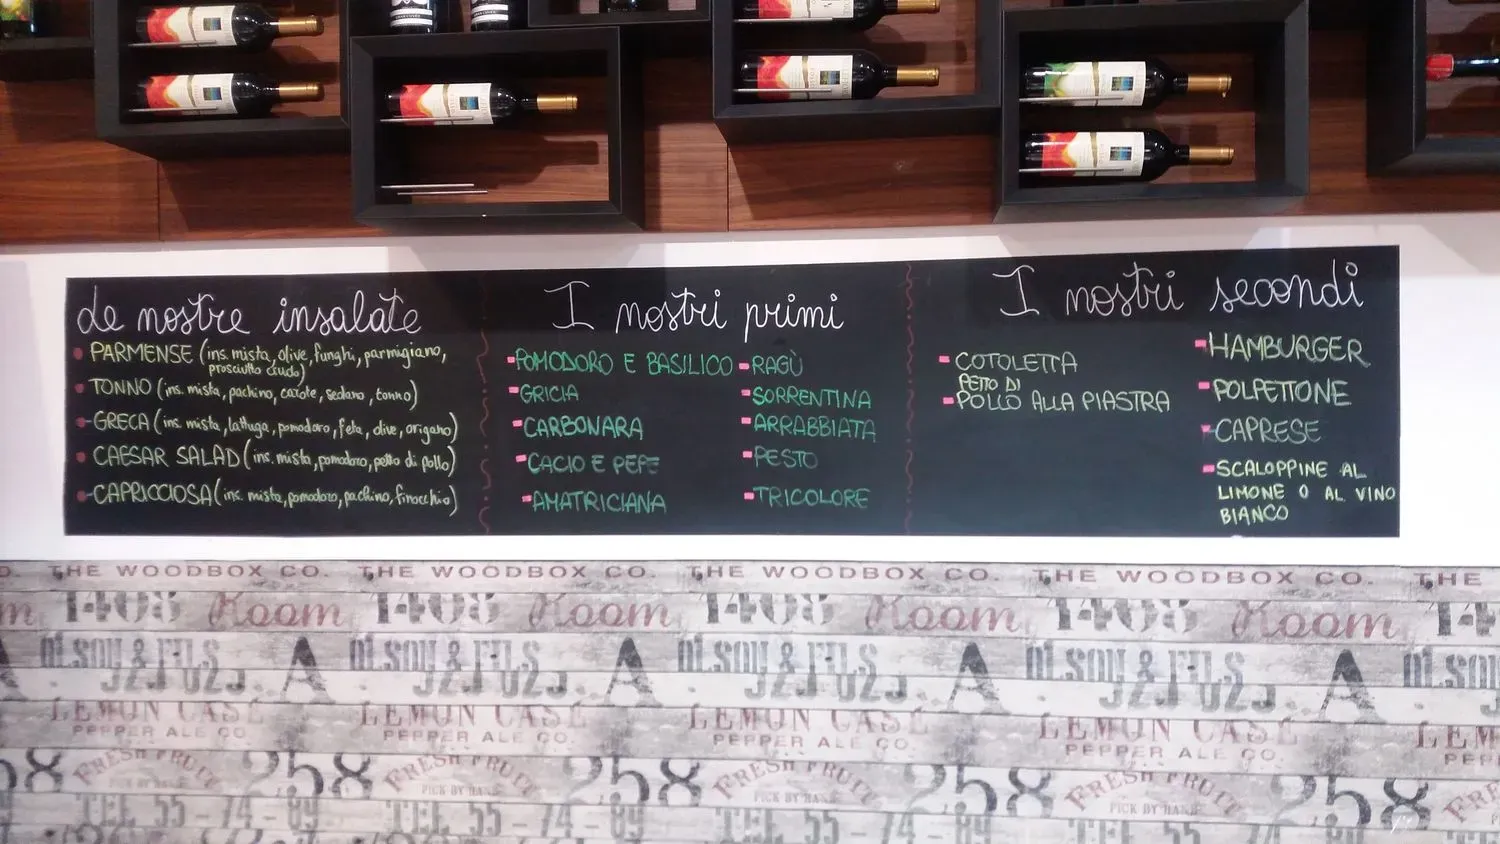 de nostre insalate
PARMENSE (ins. mista, olive, funghi, parmigiano,
prosciutto crudo)
TONNO (ins. mista, pachino, carote, sedano, tonno)
-GRECA (ins. mista, lattuga, pomodoro, feta, olive, origano)
CAESAR SALAD (ins. mista, pomodoro, petto di pollo)
-CAPRICCIOSA (ins. mista, pomodoro, pachino, finocchio)
I nostri primi
-POMODORO E BASILICO
-GRICIA
-CARBONARA
-CACIO E PEPE
-AMATRICIANA
-RAGÙ
-SORRENTINA
-ARRABBIATA
-PESTO
-TRICOLORE
I nostri secondi
-COTOLETTA
PETTO DI
-POLLO ALLA PIASTRA
-HAMBURGER
-POLPETTONE
-CAPRESE
-SCALOPPINE AL
LIMONE O AL VINO
BIANCO
THE WOODBOX CO. THE WOODBOX CO. THE WOODBOX CO. THE WOODBOX CO. THE
1408 Room 1408 Room 1408 Room 1408 Room
& FILS A & FILS A & FILS A & FILS A
LEMON CASE LEMON CASE LEMON CASE LEMON CASE
PEPPER ALE CO. PEPPER ALE CO. PEPPER ALE CO. PEPPER ALE CO.
FRESH FRUIT 258 FRESH FRUIT 258 FRESH FRUIT 258 FRESH FRUIT 258
TEL 55-74-89 TEL 55-74-89 TEL 55-74-89 TEL 55-74-89